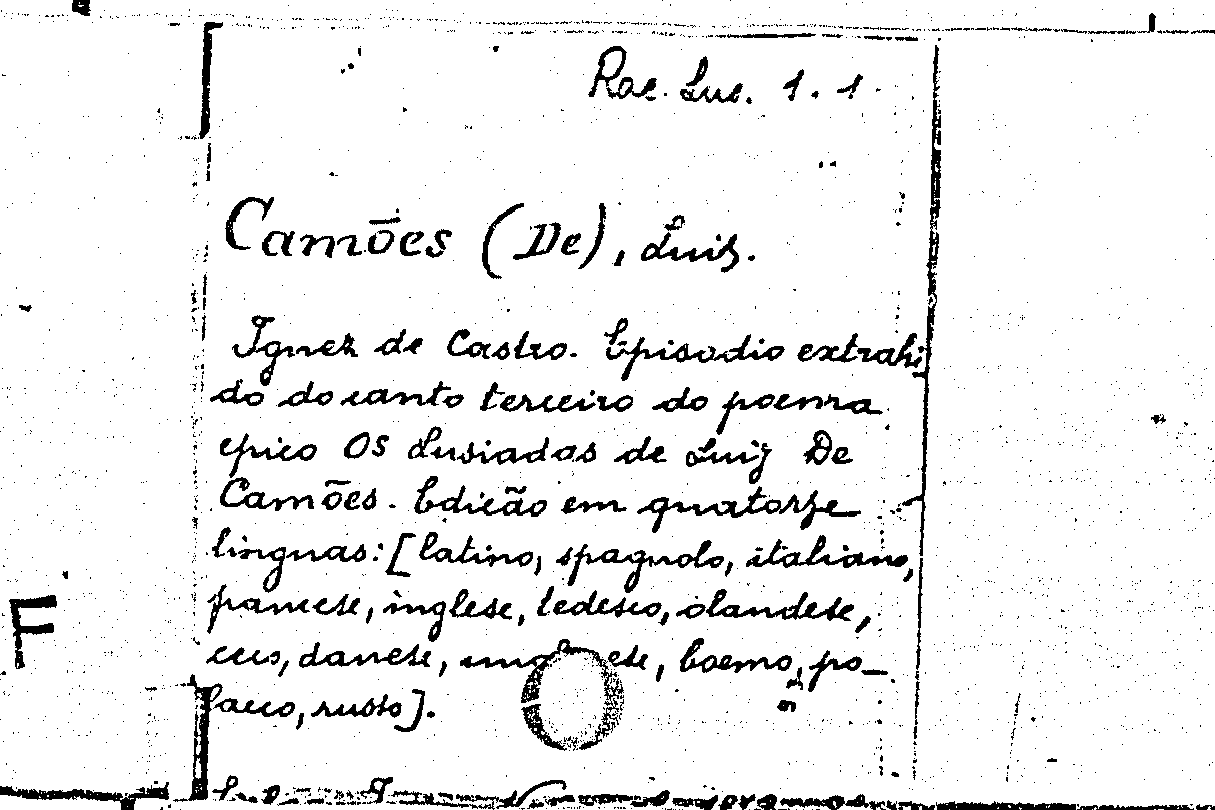 Rac. Luc. 1. 1
Camões (De), Luis.
Ignez de Castro. Episodio extrahi
do do canto terceiro do poema
epico Os Lusiadas de Luiz De
Camões. Edicão em quatorze
linguas: [latino, spagnolo, italiano,
francese, inglese, tedesco, olandese,
boemo, po_
lacco, russo].
F